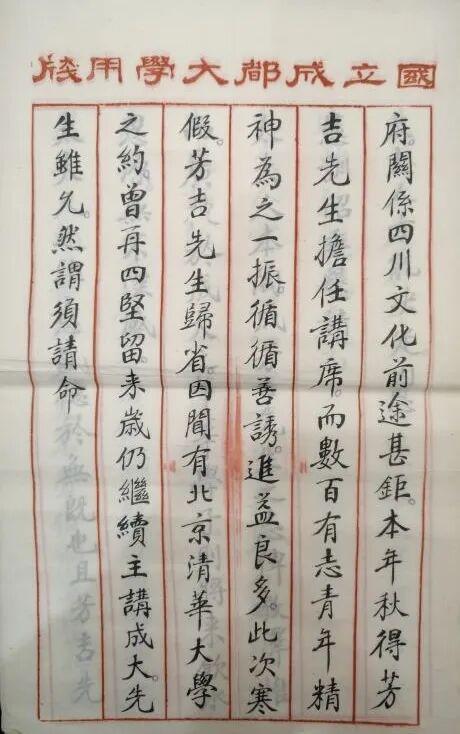 國立成都大學用牋
府。關係四川文化前途甚鉅。本年秋得芳
吉先生擔任講席。而數百有志青年精
神為之一振。循循善誘。進益良多。此次寒
假。芳吉先生歸省。因聞有北京清華大學
之約曾再四堅留。来歳仍繼續主講成大。先
生雖允。然謂須請命